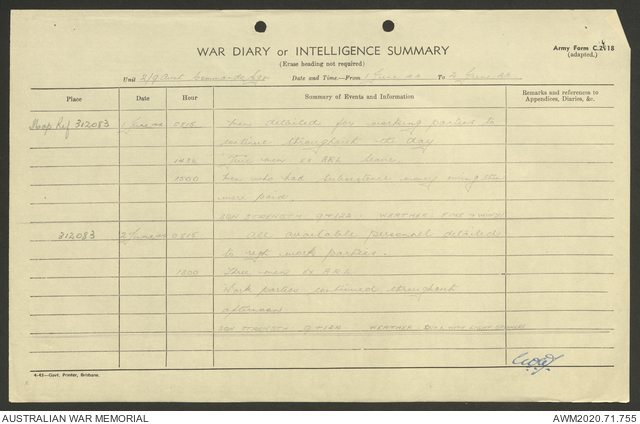 WAR DIARY or INTELLIGENCE SUMMARY
Army Form C.2118
(adapted.)
(Erase heading not required)
Unit 2/9 Aust Commando Sqn Date and Time—From 1 June 44 To 2 June 44
Place Date Hour Summary of Events and Information Remarks and references to Appendices, Diaries, &c.
Map Ref 312083 1 June 44 0815 Men detailed for working parties to
continue throughout the day
Two men ex A&L leave.
1500 Men who had subsistence money owing them
were paid
SQN STRENGTH 9+122. WEATHER FINE & WINDY
312083 2 June 44 0815 All available personnel detailed
to regt work parties.
1300 Three men ex
Work parties continued throughout
afternoon
SQN STRENGTH WEATHER DULL WITH LIGHT SHOWERS
4-43—Govt. Printer, Brisbane.
AUSTRALIAN WAR MEMORIAL AWM2020.71.755